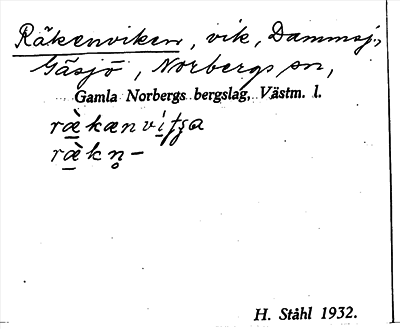 Räkenviken, vik, Dammsj.,
Gåsjö, Norbergs sn,
Gamla Norbergs bergslag, Västm. l.
ræ̀kænvi´ṭṣa
ræ̀kn̥-
H. Ståhl 1932.